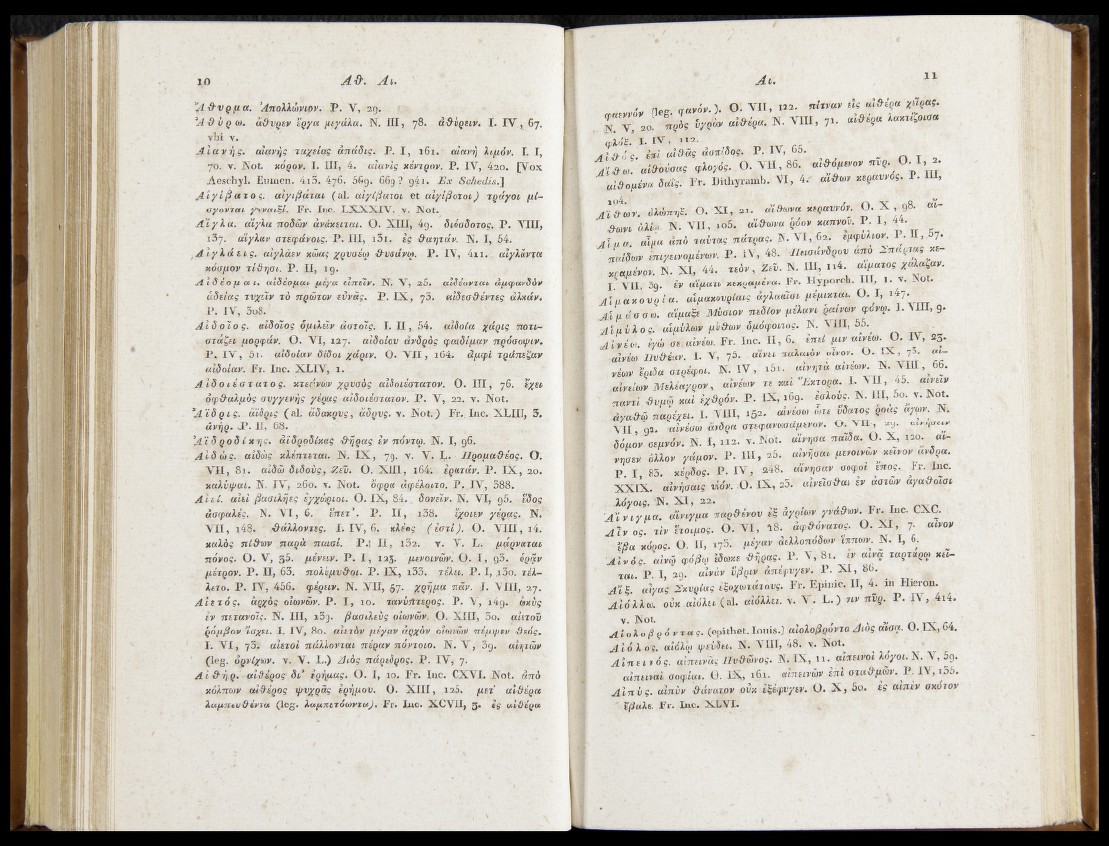 10 Ἀϑ. Αι.
Ἄϑυρμα. Ἀπολλώνιον. P. V, 29.
Ἀϑύρω. ἄϑυρεν ἔργα μεγάλα. N. III, 78. ἀϑύρειν. I. IV, 67.
vbi v.
Αἰανής. αἰανῆς ταχείας ἐλπίδος. P. I, 161. αἰανῆ λιμόν. I. I,
70. v. Not. κόρον. I. III, 4. αἰανὶς κέντρον. P. IV, 420. [Vox
Aeschyl. Eumen. 413. 476. 569. 669? 941. Ex Schedis.]
Αἰγίβατος. αἰγιβάται (al. αἰγίβατοι et αἰγίβοτοι) τράγοι μί-
σγονται γυναιξί. Fr. Inc. LXXXIV. v. Not.
Αἴγλα. αἴγλα ποδῶν ἀνάκειται. O. XIII, 49. διέσδοτος. P. VIII,
137. αἴγλαν στεφάνοις. P. III, 131. ἐς ϑανητάν. N. I, 54.
Αἰγλάεις. αἰγλᾶεν κῶας χρυσέῳ ϑυσάνῳ. P. IV, 411. αἰγλᾶντα
κόσμον τίϑησι. P. II, 19.
Αἰδέομαι. αἰδέομαι μέγα εἰπεῖν. N. V, 25. αἰδέονται ἀμφανδὸν
ἁδείας τυχεῖν τὸ πρῶτον εὐνᾶς. P. IX, 73. αἰδεσϑέντες ἀλκάν.
P. IV, 308.
Αἰδοῖος. αἰδοῖος ὁμιλεῖν ἀστοῖς. I. II, 54. αἰδοία χάρις ποτι-
στάζει μορφάν. O. VI, 127. αἰδοίου ἀνδρὸς φαιδίμαν πρόσοψιν.
P. IV, 51. αἰδοίαν δίδοι χάριν. O. VII, 164. ἀμφὶ τράπεζαν
αἰδοίαν. Fr. Inc. XLIV, 1.
Αἰδοιέστατος. κτεάνων χρυσὸς αἰδοιέστατον. O. III, 76. ἔχει
ὀφϑαλμὸς συγγενὴς γέρας αἰδοιέστατον. P. V, 22. v. Not.
Ἄϊδρις. ἄϊδρις (al. ἄδακρυς, ἄδρυς. v. Not.) Fr. Inc. XLIII, 3.
ἀνήρ. P. II, 68.
Ἀϊδροδίκης. ἀϊδροδίκας ϑῆρας ἐν πόντῳ. N. I, 96.
Αἰδώς. αἰδὼς κλέπτεται. N. IX, 79. v. V. L. Προμαϑέος. O.
VII, 81. αἰδῶ διδούς, Ζεῦ. O. XIII, 164. ἐρατάν. P. IX, 20.
καλύψαι. N. IV, 260. v. Not. ὄφρα ἀφέλοιτο. P. IV, 388.
Αἰεί. αἰεὶ βασιλῆες ἐγχώριοι. O. IX, 84. δονεῖν. N. VI, 95. ἕδος
ἀσφαλές. N. VI, 6. ἕπετ'. P. II, 138. ἔχοιεν γέρας. N.
VII, 148. ϑάλλοντες. I. IV, 6. κλέος (ἐστί). O. VIII, 14.
καλὸς πίϑων παρὰ παισί. P. II, 132. v. V. L. μάρναται
πόνος. O. V, 35. μένειν. P. I, 123. μενοινῶν. O. I, 93. ὁρᾶν
μέτρον. P. II, 63. πολύμυϑοι. P. IX, 133. τέλει. P. I, 130. τέλ-
λετο. P. IV, 456. φέρειν. N. VII, 57. χρῆμα πάν. I. VIII, 27.
Αἰετός. ἀρχὸς οἰωνῶν. P. I, 10. τανύπτερος. P. V, 149. ὠκὺς
ἐν πετανοῖς. N. III, 139. βασιλεὺς οἰωνῶν. O. XIII, 30. αἰετοῦ
ῥόμβον ἴσχει. I. IV, 80. αἰετὸν μέγαν ἀρχὸν οἰωνῶν πέμψεν ϑεός.
I. VI, 73. αἰετοὶ πάλλονται πέραν πόντοιο. N. V, 39. αἰητῶν
(leg. ὀρνίχων. v. V. L.) Διὸς πάρεδρος. P. IV, 7.
Αἰϑήρ. αἰϑέρος δι' ἐρήμας. O. I, 10. Fr. Inc. CXVI. Not. ἀπὸ
κόλπων αἰϑέρος ψυχρᾶς ἐρήμου. O. XIII, 125. μετ' αἰϑέρα
λαμπευϑέντα (leg. λαμπετόωντα). Fr. Inc. XCVII, 3. ἐς αἰϑέρα
Αι. 11
φαεννόν (leg. φανόν.). O. VII, 122. πίτναν εἰς αἰϑέρα χεῖρας.
N. V, 20. πρὸς ὑγρὸν αἰϑέρα. N. VIII, 71. αἰϑέρα λακτίζοισα
φλόξ. I. IV, 112.
Αἰϑός. ἐπὶ αἰϑᾶς ἀσπίδος. P. IV, 65.
Αἴϑω. αἰϑοίσας φλογός. O. VII, 86. αἰϑόμενον πῦρ. O. I, 2.
αἰϑομένα δαΐς. Fr. Dithyramb. VI, 4. αἴϑων κεραυνός. P. III,
104.
Αἴϑων. ἀλώπηξ. O. XI, 21. αἴϑωνα κεραυνόν. O. X, 98. αἴ-
ϑωνι ἁλίῳ. N. VII, 105. αἴϑωνα ῥόον καπνοῦ. P. I, 44.
Αἷμα. αἷμα ἀπὸ ταύτας πάτρας. N. VI, 62. ἐμφύλιον. P. II, 57.
παίδων ἐπιγεινομένων. P. IV, 48. Πεισάνδρου ἀπὸ Σπάρτας κε-
κραμένον. N. XI, 44. τεόν, Ζεῦ. N. III, 114. αἵματος χάλαζαν.
I. VII, 39. ἐν αἵματι κεκραμένα. Fr. Hyporch. III, 1. v. Not.
Αἱμακουρία. αἱμακουρίαις ἀγλααῖσι μέμικται. O. I, 147.
Αἱμάσσω. αἵμαξε Μύσιον πεδίον μέλανι ῥαίνων φόνῳ. I. VIII, 9.
Αἱμύλος. αἱμύλων μύϑων ὁμόφοιτος. N. VIII, 55.
Αἰνέω. ἐγώ σε αἰνέω. Fr. Inc. II, 6. ἐπεί μιν αἰνέω. O. IV, 23.
αἰνέω Πυϑέαν. I. V, 75. αἴνει παλαιὸν οἶνον. O. IX, 73. αἰ-
νέων ἔριδα στρέφοι. N. IV, 151. αἰνητὰ αἰνέων. N. VIII, 66.
αἰνείων Μελέαγρον, αἰνέων τε καὶ Ἕκτορα. I. VII, 45. αἰνεῖν
παντὶ ϑυμῷ καὶ ἐχϑρόν. P. IX, 169. ἐσλούς. N. III, 50. v. Not.
ἀγαϑῷ παρέχει. I. VIII, 152. αἰνέσω ὧτε ὕδατος ῥοὰς ἄγων. N.
VII, 92. αἰνέσω ἄνδρα στεφανωσάμενον. O. VII, 29. αἰνήσειν
δόμον σεμνόν. N. I, 112. v. Not. αἴνησα παῖδα. O. X, 120. αἴ-
νησεν ἄλλον γάμον. P. III, 25. αἰνῆσαι μενοινῶν κεῖνον ἄνδρα.
P. I, 83. κέρδος. P. IV, 248. αἴνησαν σοφοὶ ἔπος. Fr. Inc.
XXIX. αἰνήσαις υἱόν. O. IX, 23. αἰνεῖσϑαι ἐν ἀστῶν ἀγαϑοῖσι
λόγοις. N. XI, 22.
Αἴνιγμα. αἴνιγμα παρϑένου ἐξ ἀγρίων γνάϑων. Fr. Inc. CXC.
Αἶνος. τὶν ἕτοιμος. O. VI, 18. ἀφϑόνατος. O. XI, 7. αἶνον
ἔβα κόρος. O. II, 173. μέγαν ἀελλοπόδων ἵππων. N. I, 6.
Αἰνός. αἰνῷ φόβῳ ἔδωκε ϑῆρας. P. V, 81. ἐν αἰνᾷ ταρτάρῳ κεῖ-
ται. P. I, 29. αἰνὰν ὕβριν ἀπέφυγεν. P. XI, 86.
Αἴξ. αἶγας Σκυρίας ἐξοχωτάτους. Fr. Epinic. II, 4. in Hieron.
Αἰόλλω. οὐκ αἰόλει (al. αἰόλλει. v. V. L.) νιν πῦρ. P. IV, 414.
v. Not.
Αἰολοβρόντας. (epithet. Iouis.) αἰολοβρόντα Διὸς αἴσᾳ. O. IX, 64.
Αἰόλος. αἰόλῳ ψεύδει. N. VIII, 48. v. Not.
Αἰπεινός. αἰπεινᾶς Πυϑῶνος. N. IX, 11. αἰπεινοὶ λόγοι. N. V, 59.
αἰπειναὶ σοφίαι. O. IX, 161. αἰπεινῶν ἐπὶ σταϑμῶν. P. IV, 135.
Αἰπύς. αἰπὺν ϑάνατον οὐκ ἐξέφυγεν. O. X, 50. ἐς αἰπὺν σκότον
ἔβαλε. Fr. Inc. XLVI.